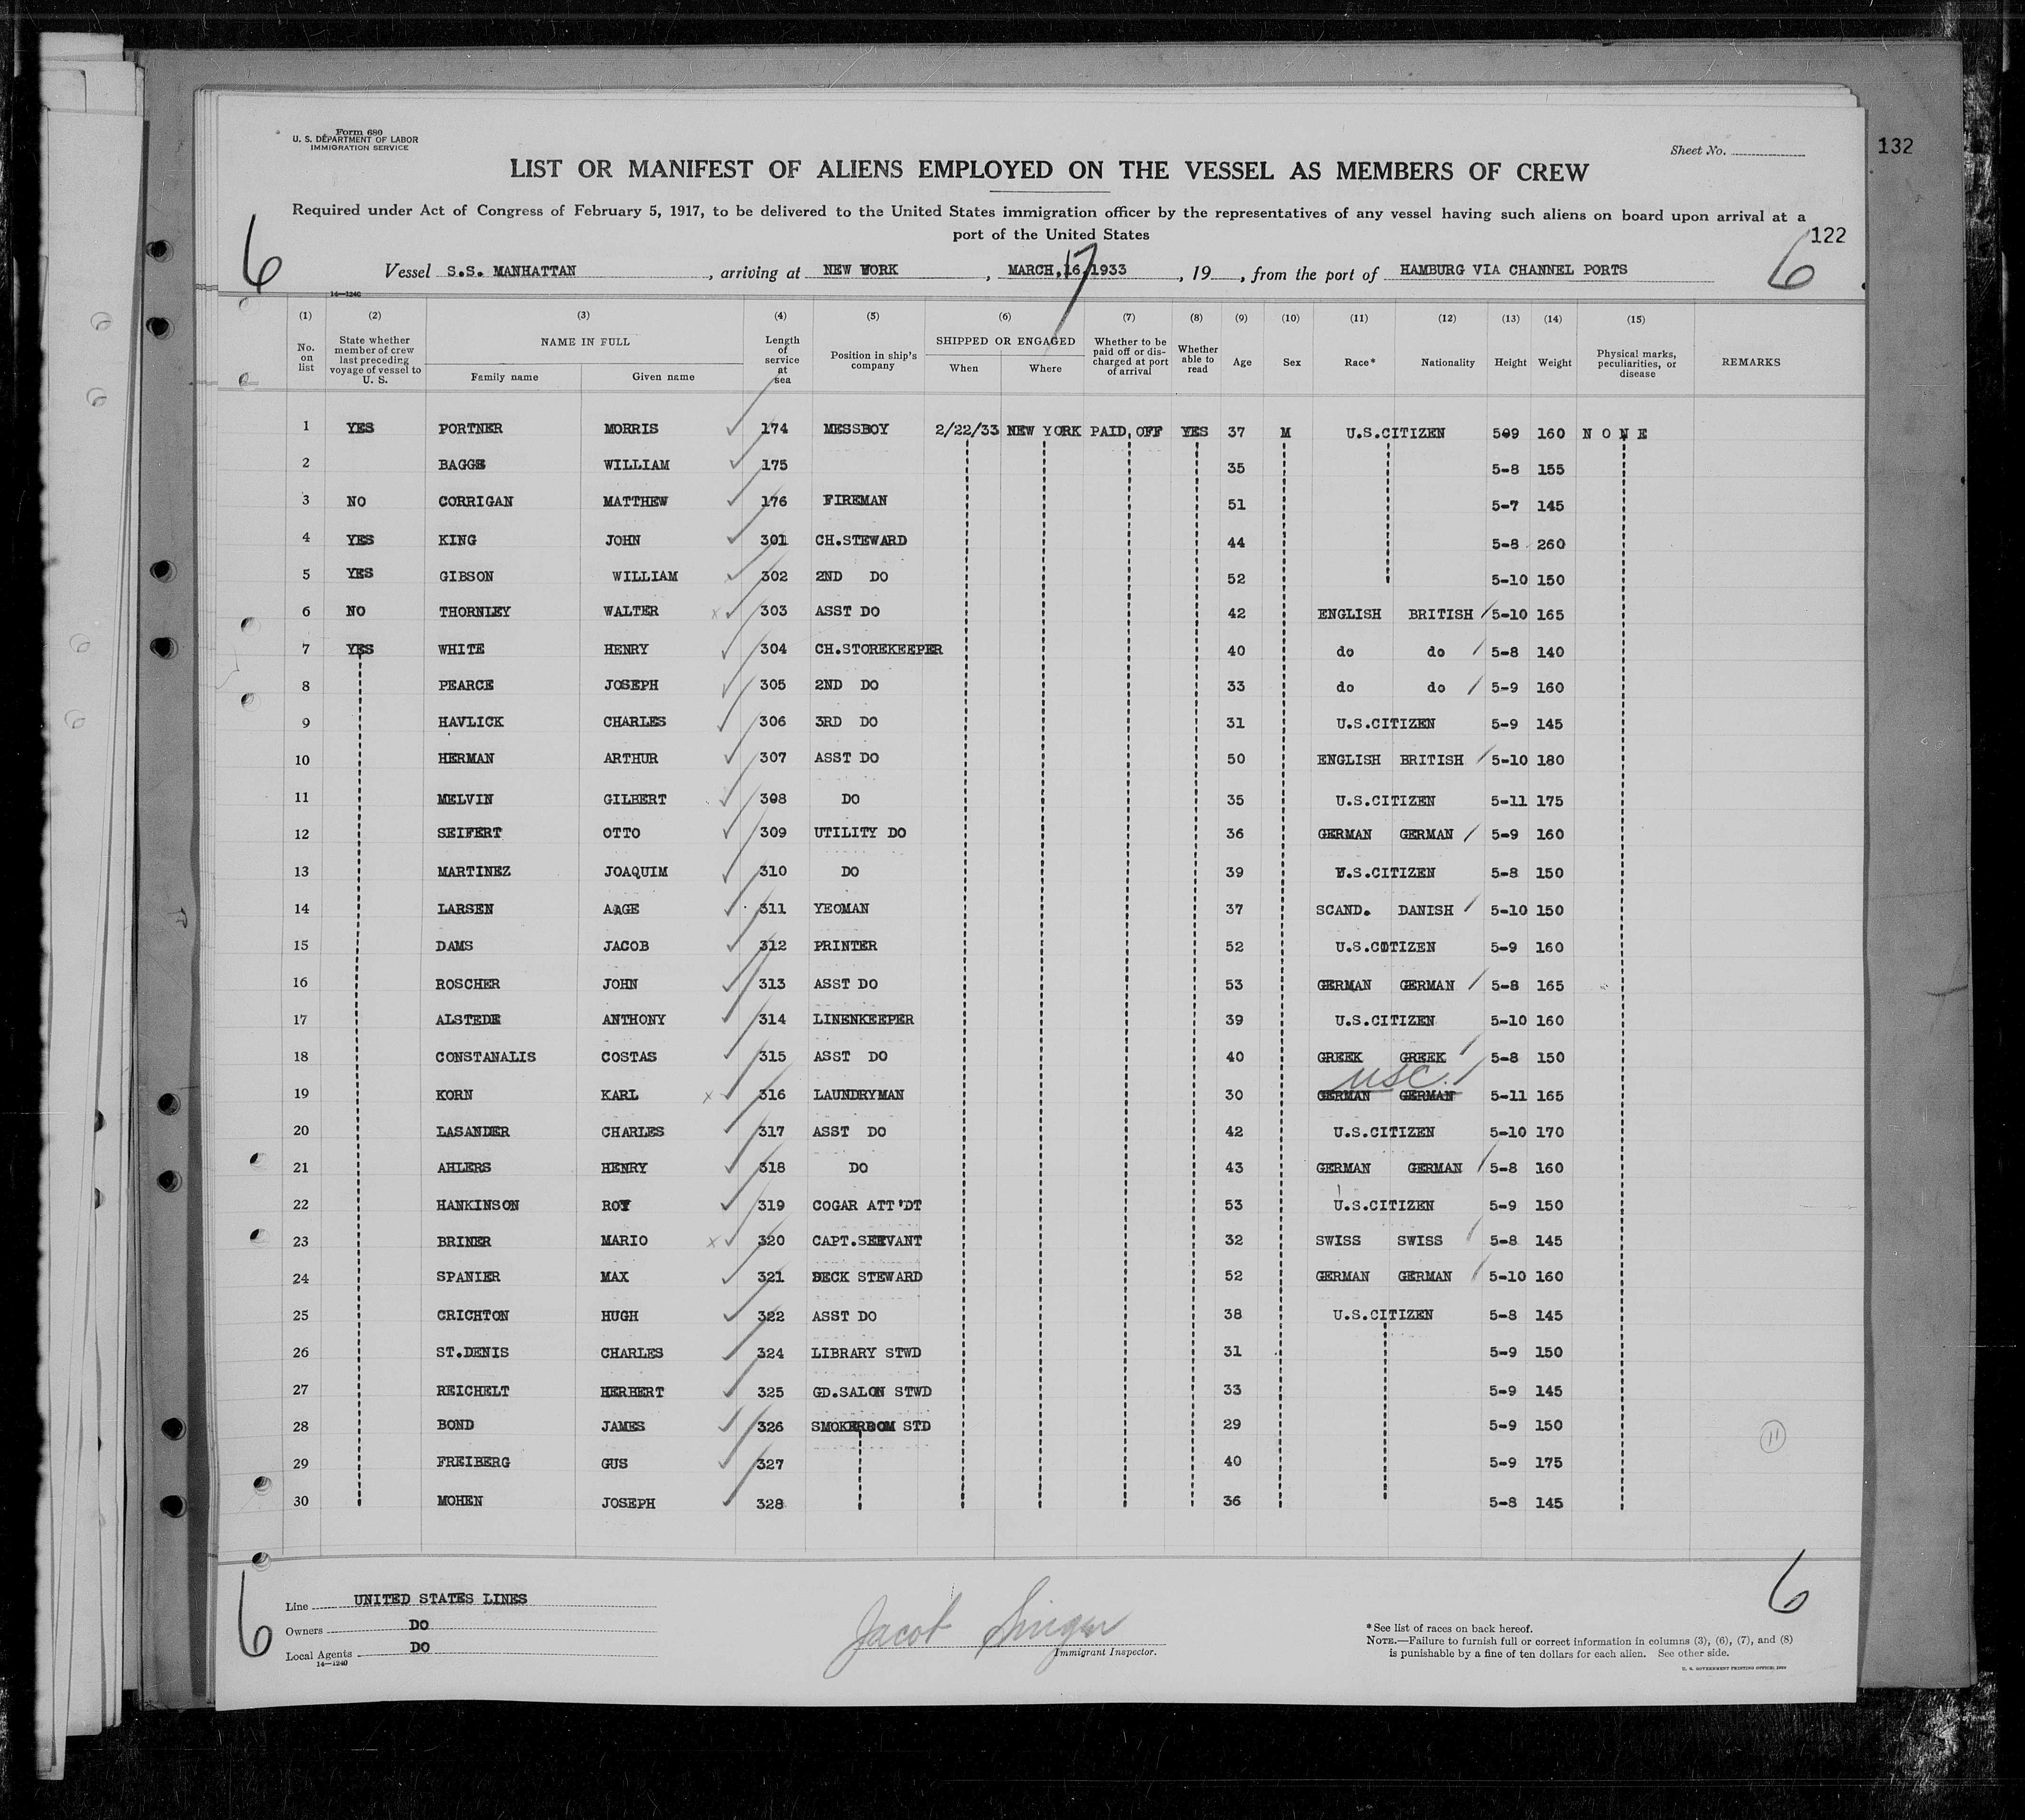 Form 680
U. S. DEPARTMENT OF LABOR
IMMIGRATION SERVICE
Sheet No.
132
LIST OR MANIFEST OF ALIENS EMPLOYED ON THE VESSEL AS MEMBERS OF CREW
Required under Act of Congress of February 5, 1917, to be delivered to the United States immigration officer by the representatives of any vessel having such aliens on board upon arrival at a
port of the United States
122
6 6
Vessel S.S. MANHATTAN, arriving at NEW YORK, MARCH, 16, 1933, 19, from the port of HAMBURG VIA CHANNEL PORTS
7
14—1240
(1) (2) (3) (4) (5) (6) (7) (8) (9) (10) (11) (12) (13) (14) (15)
No. on list State whether member of crew last preceding voyage of vessel to U. S. NAME IN FULL Family name Given name Length of service at sea Position in ship's company SHIPPED OR ENGAGED When Where Whether to be paid off or discharged at port of arrival Whether able to read Age Sex Race* Nationality Height Weight Physical marks, peculiarities, or disease REMARKS
1 YES PORTNER MORRIS 174 MESSBOY 2/22/33 NEW YORK PAID OFF YES 37 M U.S.CITIZEN 509 160 N O N E
2 BAGGE WILLIAM 175 35 5-8 155
3 NO CORRIGAN MATTHEW 176 FIREMAN 51 5-7 145
4 YES KING JOHN 301 CH.STEWARD 44 5-8 260
5 YES GIBSON WILLIAM 302 2ND DO 52 5-10 150
6 NO THORNLEY WALTER 303 ASST DO 42 ENGLISH BRITISH 5-10 165
7 YES WHITE HENRY 304 CH.STOREKEEPER 40 do do 5-8 140
8 PEARCE JOSEPH 305 2ND DO 33 do do 5-9 160
9 HAVLICK CHARLES 306 3RD DO 31 U.S.CITIZEN 5-9 145
10 HERMAN ARTHUR 307 ASST DO 50 ENGLISH BRITISH 5-10 180
11 MELVIN GILBERT 308 DO 35 U.S.CITIZEN 5-11 175
12 SEIFERT OTTO 309 UTILITY DO 36 GERMAN GERMAN 5-9 160
13 MARTINEZ JOAQUIM 310 DO 39 U.S.CITIZEN 5-8 150
14 LARSEN AAGE 311 YEOMAN 37 SCAND. DANISH 5-10 150
15 DAMS JACOB 312 PRINTER 52 U.S.CITIZEN 5-9 160
16 ROSCHER JOHN 313 ASST DO 53 GERMAN GERMAN 5-8 165
17 ALSTEDE ANTHONY 314 LINENKEEPER 39 U.S.CITIZEN 5-10 160
18 CONSTANALIS COSTAS 315 ASST DO 40 GREEK GREEK 5-8 150
USC.
19 KORN KARL 316 LAUNDRYMAN 30 GERMAN GERMAN 5-11 165
20 LASANDER CHARLES 317 ASST DO 42 U.S.CITIZEN 5-10 170
21 AHLERS HENRY 318 DO 43 GERMAN GERMAN 5-8 160
22 HANKINSON ROY 319 COGAR ATT'DT 53 U.S.CITIZEN 5-9 150
23 BRINER MARIO 320 CAPT.SERVANT 32 SWISS SWISS 5-8 145
24 SPANIER MAX 321 DECK STEWARD 52 GERMAN GERMAN 5-10 160
25 CRICHTON HUGH 322 ASST DO 38 U.S.CITIZEN 5-8 145
26 ST.DENIS CHARLES 324 LIBRARY STWD 31 5-9 150
27 REICHELT HERBERT 325 GD.SALON STWD 33 5-9 145
28 BOND JAMES 326 SMOKEROOM STD 29 5-9 150
11
29 FREIBERG GUS 327 40 5-9 175
30 MOHEN JOSEPH 328 36 5-8 145
6 6
Line UNITED STATES LINES
Owners DO
Local Agents DO
14—1240
Jacob Singer
Immigrant Inspector.
*See list of races on back hereof.
NOTE.—Failure to furnish full or correct information in columns (3), (6), (7), and (8)
is punishable by a fine of ten dollars for each alien. See other side.